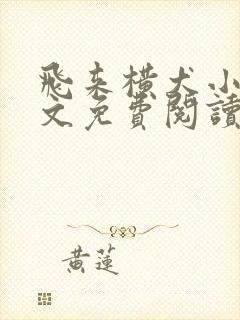 飛来横犬小
文免費閱讀
黃蓮